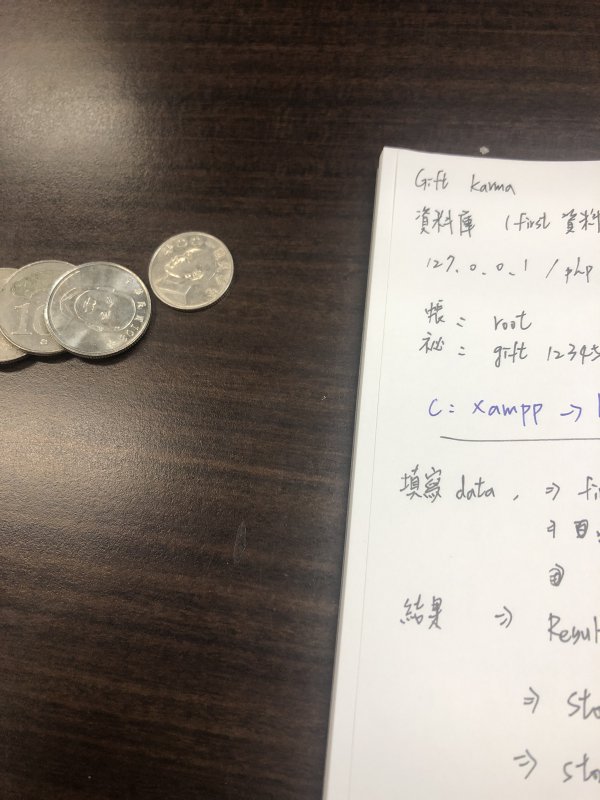 10
Gift karma
資料庫 (first 資料
127.0.0.1 / php
帳 = root
祕 = gift 12345
C = xampp →
填寫 data, ⇒ fi
結果 ⇒ Resul
⇒ sto
⇒ stor